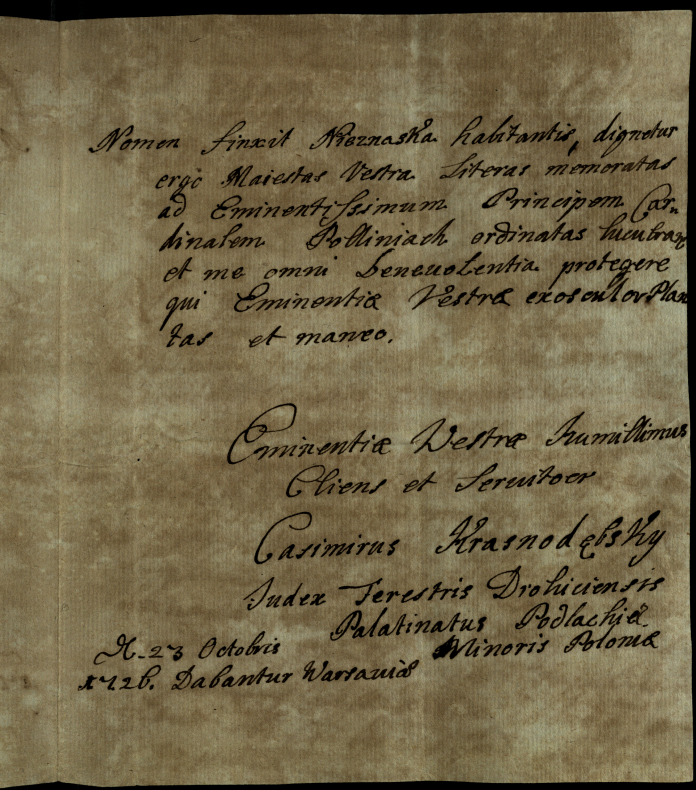 Nomen finxit Nieznaska habitantis, dignetur
ergo Maiestas Vestra Literas memoratas
ad Eminentissimum Principem Car-
dinalem Polliniach ordinatas
et me omni benevolentia protegere
qui Eminentiæ Vestræ exosculor Plan
tas et maneo.
Eminentiæ Vestræ humillimus
Cliens et Servitoer
Casimirus Krasnodębsky
Iudex Terestris Drohiciensis
Palatinatus Podlachiæ
D. 23 Octobris Minoris Poloniæ
1726. Dabantur Warsaviæ